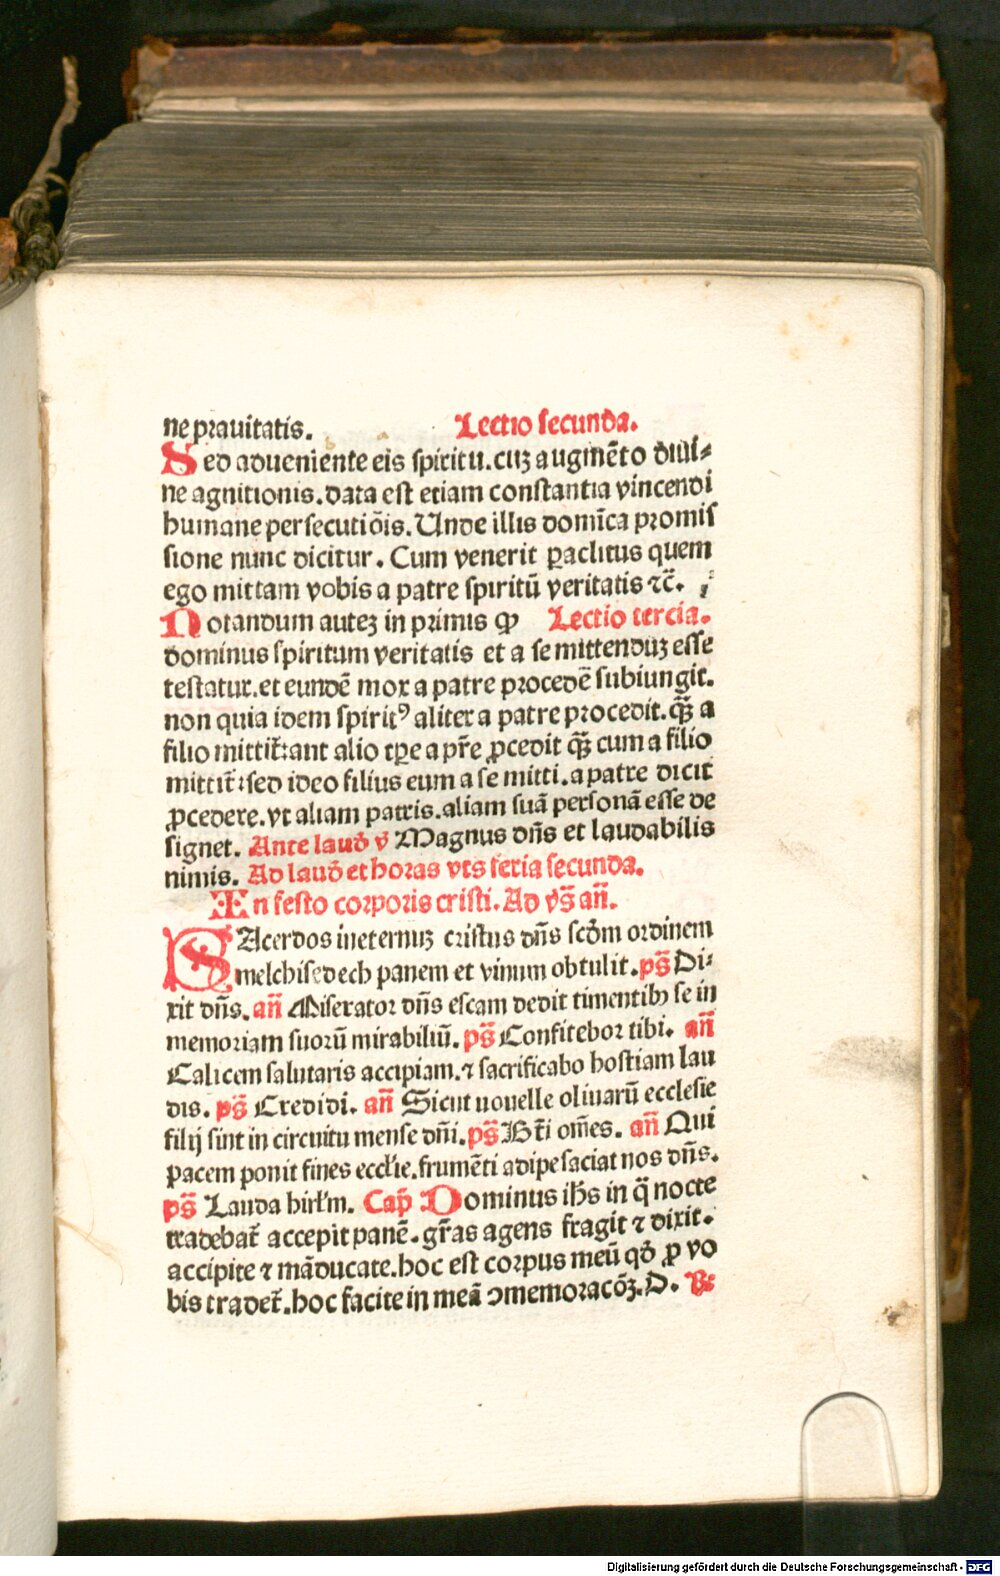 ne prauitatis. Lectio secunda.
Sed adueniente eis spiritu.cuȝ augmēto diui⸗
ne agnitionis.data est etiam constantia vincendi
humane persecutiōis.Unde illis domīca promis
sione nunc dicitur. Cum venerit ꝑaclitus quem
ego mittam vobis a patre spiritū veritatis ⁊c̄.
Notandum auteȝ in primis ꝙ Lectio tercia.
dominus spiritum veritatis et a se mittenduȝ esse
testatur.et eundē mox a patre procedē subiungit.
non quia idem spiritꝰ aliter a patre procedit.qȝ̄ a
filio mittit̄:aut alio tꝑe a pr̄e ꝓcedit qȝ̄ cum a filio
mittit̄:sed ideo filius eum a se mitti.a patre dicit
ꝓcedere.vt aliam patris.aliam suā personā esse de
signet. Ante laud̄ v̄ Magnus dn̄s et laudabilis
nimis. Ad laud̄ et horas vts feria secunda.
In festo corporis cristi. Ad vs̄ an̄.
SAcerdos ineternuȝ cristus dn̄s scd̄m ordinem
melchisedech panem et vinum obtulit.ps̄ Di⸗
xit dn̄s. an̄ Miserator dn̄s escam dedit timentibȝ se in
memoriam suorū mirabiliū. ps̄ Confitebor tibi. an̄
Calicem salutaris accipiam.⁊ sacrificabo hostiam lau
dis. ps̄ Credidi. an̄ Sicut nouelle oliuarū ecclesie
filij sint in circuitu mense dn̄i.ps̄ Bt̄i om̄es. an̄ Qui
pacem ponit fines eccl̄ie.frumēti adipe saciat nos dn̄s.
ps̄ Lauda hirl̄m. Cap̄ Dominus ih̄s in q̄ nocte
tradebat̄ accepit panē.gr̄as agens fragit ⁊ dixit.
accipite ⁊ māducate.hoc est corpus meū qd̄ ꝓ vo
bis tradet̄.hoc facite in meā ↄmemoracōȝ.D. ℟
Digitalisierung gefördert durch die Deutsche Forschungsgemeinschaft - DFG